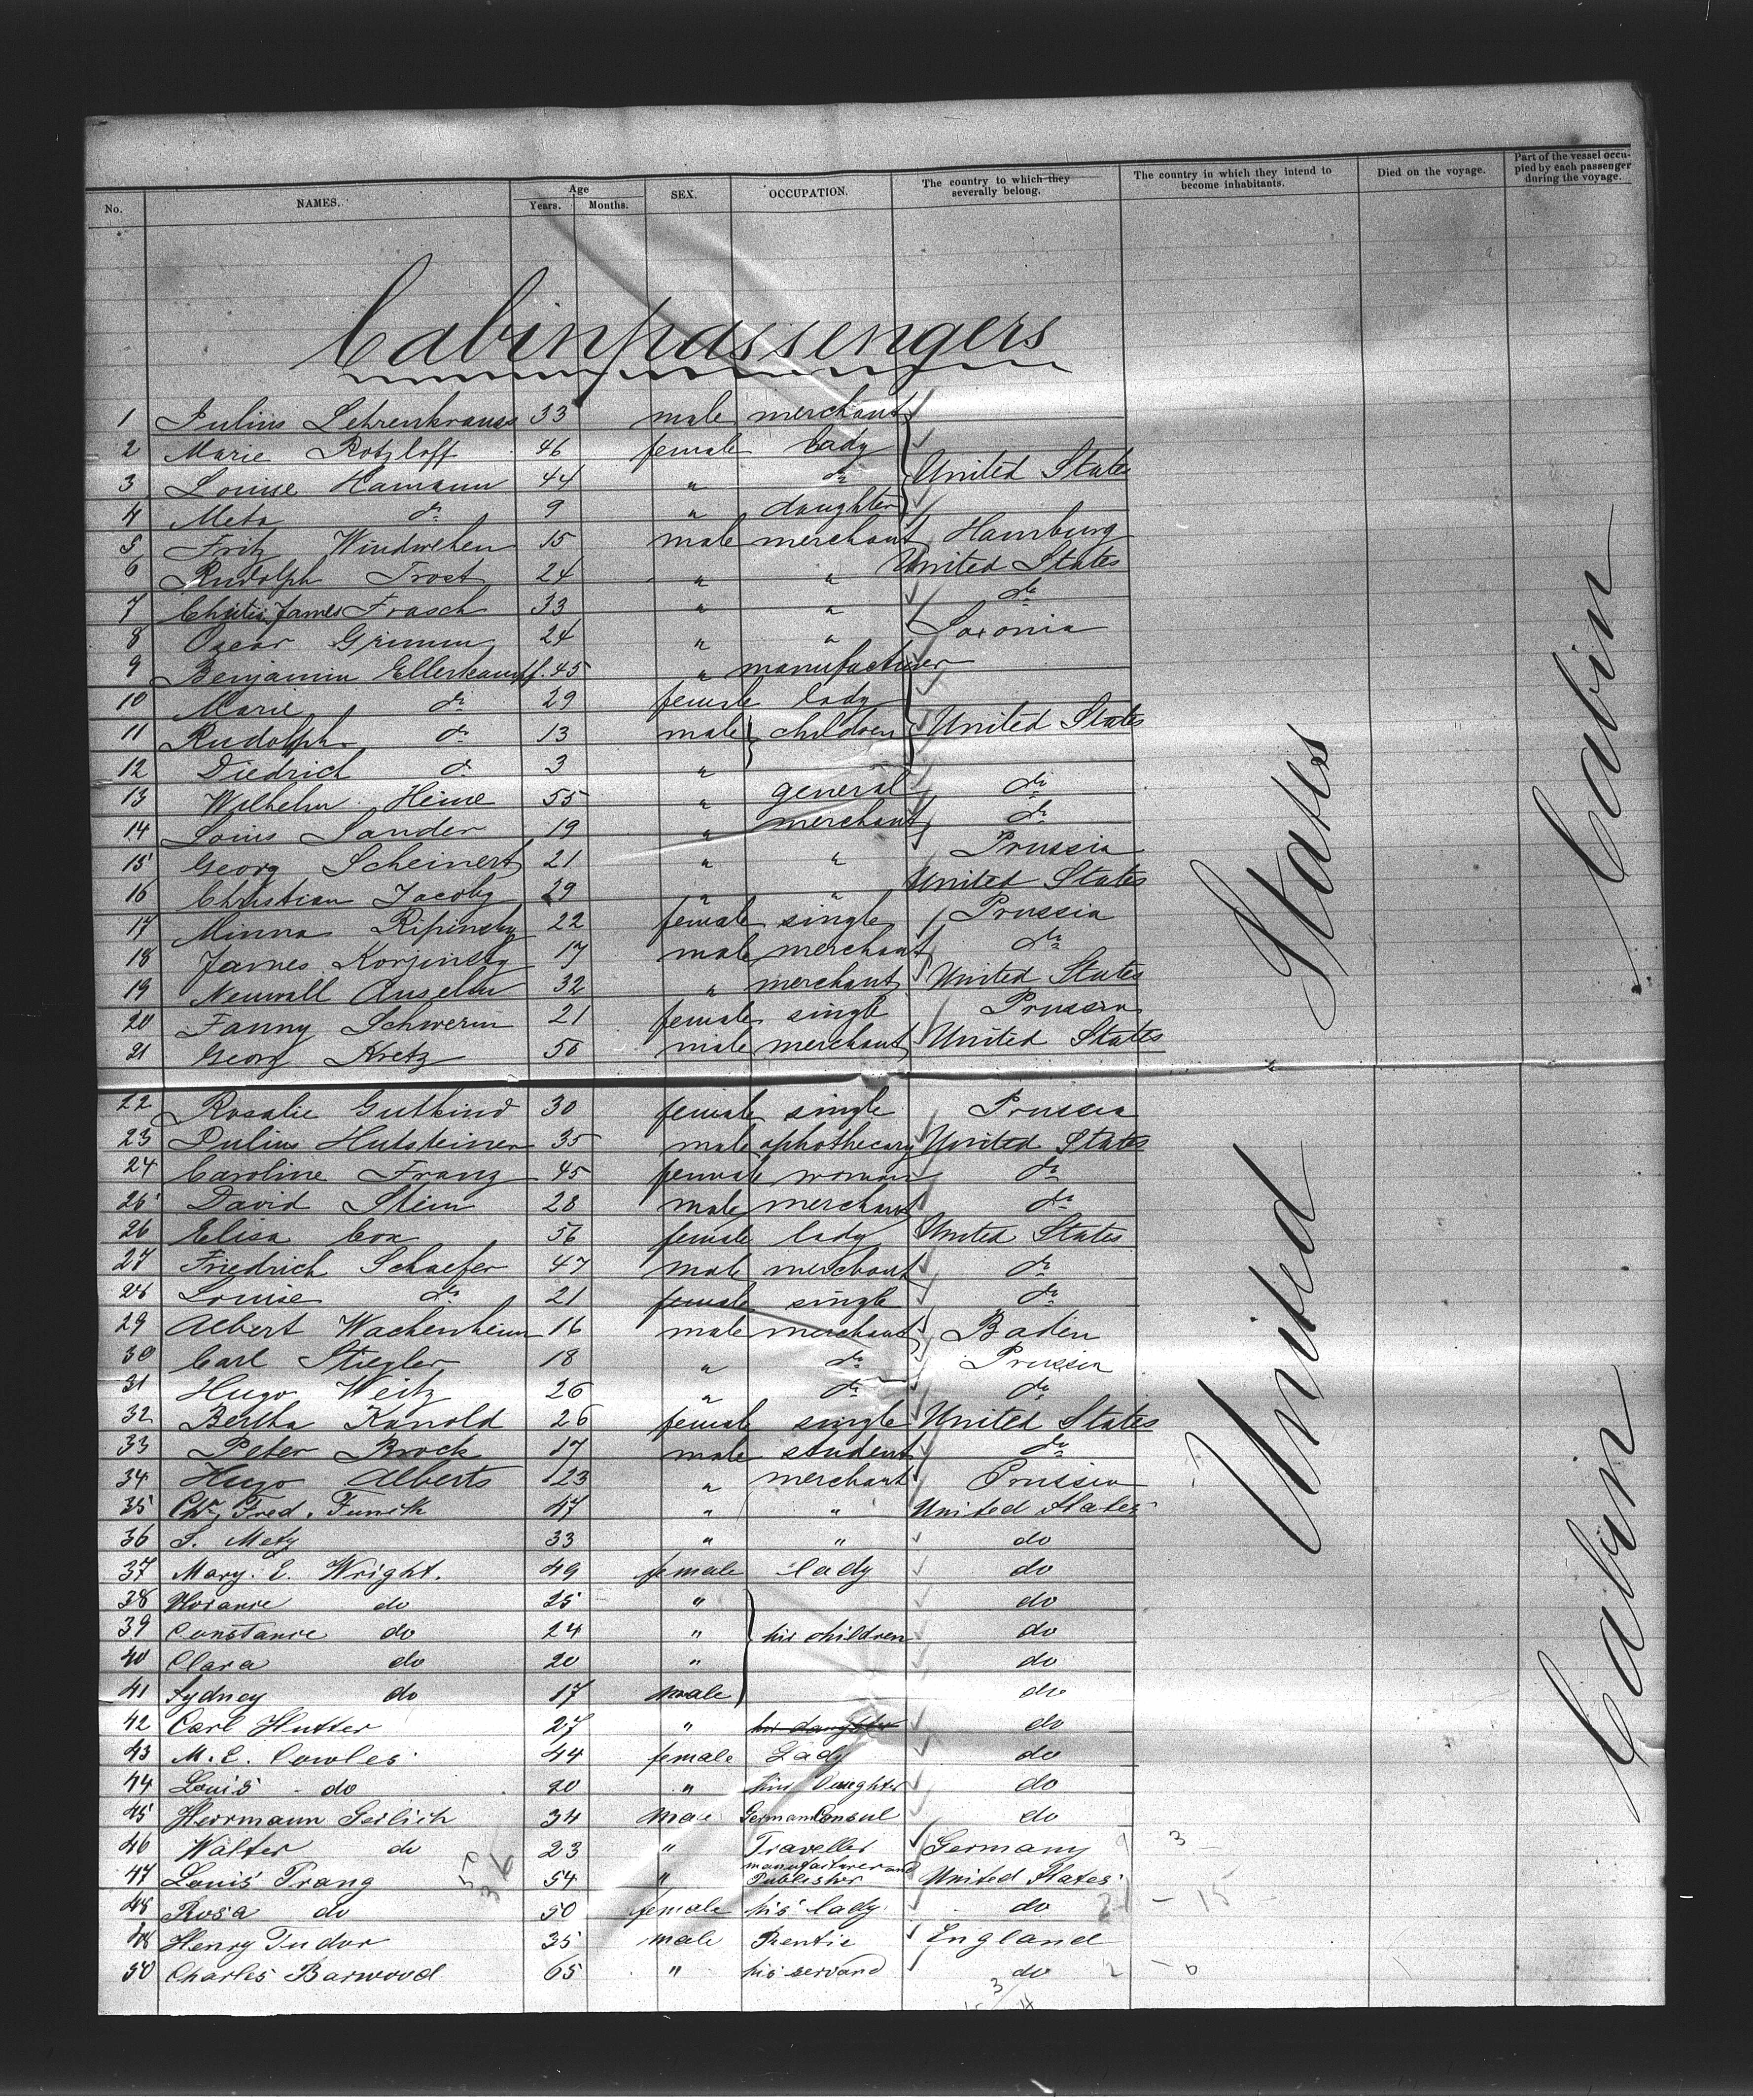 No. NAMES. Age Years. Months. SEX. OCCUPATION. The country to which they severally belong. The country in which they intend to become inhabitants. Died on the voyage. Part of the vessel occupied by each passenger during the voyage.
Cabinpassengers
1 Julius Lehrenkrauss 33 male merchant
2 Marie Rotzloff 46 female lady
3 Louise Hamann 44 " do United States
4 Meta do 9 " daughter
5 Fritz Windwehen 15 male merchant Hamburg
6 Rudolph Trost 24 " " United States
7 James Frasch 33 " " do
8 Oscar Grimm 24 " " Saxonia
9 Benjamin Ellerkampf. 45 " manufacturer
10 Marie do 29 female lady
11 Rudolph do 13 male children United States
12 Diedrich do 3 "
13 Wilhelm Heine 55 " general do
14 Louis Sander 19 " merchant do
15 Georg Scheinert 21 " " Prussia
16 Christian Jacoby 29 " " United States
17 Minna Ripinsky 22 female single Prussia
18 James Korzinsky 17 male merchant do
19 Neuwall Anselm 32 " merchant United States
20 Fanny Schwerin 21 female single Prussia
21 Georg Kretz 50 male merchant United States
22 Rosalie Gutkind 30 female single Prussia
23 Julius Hutsteiner 35 male aphothecary United States
24 Caroline Franz 45 female woman do
25 David Stein 28 male merchant do
26 Elisa Cox 56 female lady United States
27 Friedrich Schaefer 47 male merchant do
28 Louise do 21 female single do
29 Albert Wachenheim 16 male merchant Baden
30 Carl Stiegler 18 " do Prussia
31 Hugo Weitz 26 " do do
32 Bertha Kanold 26 female single United States
33 Peter Brock 17 male student do
34 Hugo Alberts 23 " merchant Prussia
35 Chr. Fred. Funck 47 " " United States
36 S. Metz 33 " " do
37 Mary. E. Wright. 49 female lady do
38 Florance do 25 " do
39 Constance do 24 " his children do
40 Clara do 20 " do
41 Sydney do 17 male do
42 Carl Hutter 27 " his daughter do
43 M. E. Cowles 44 female Lady do
44 Louis do 20 " his Daughter do
45 Herrmann Gerlich 34 male German Consul do
46 Walter do 23 " Traveller Germany 3
47 Louis Prang 54 " manufacturer and Publisher United States
48 Rosa do 50 female his lady do 21 - 15
48 Henry Tudor 35 male Rentie England
50 Charles Barwood 65 " his servand do 2 - 0
United States
Cabin
Cabin